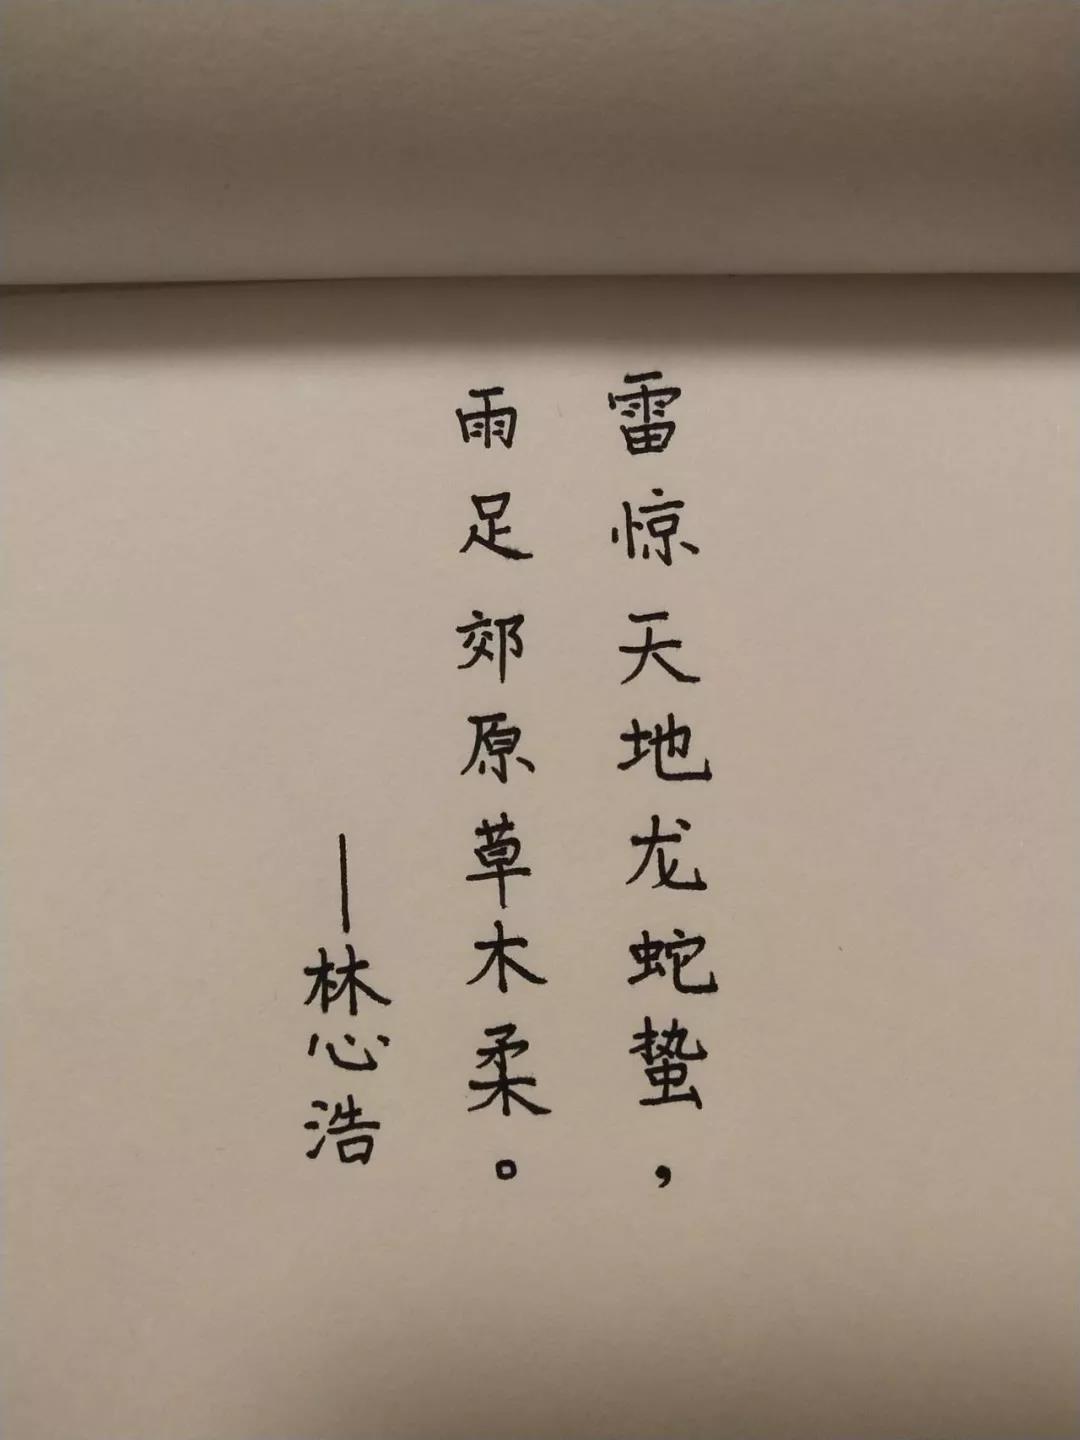 雷惊天地龙蛇蛰，
雨足郊原草木柔。
——林心浩